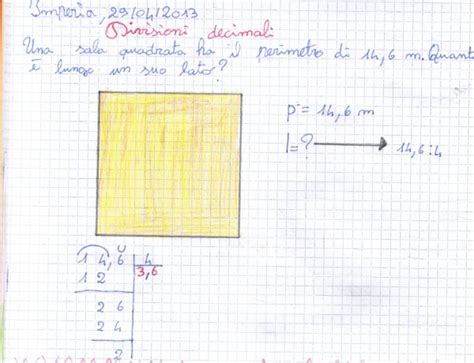 Imperia, 29/04/2013
Divisioni decimali
Una sala quadrata ha il perimetro di 14,6 m. Quant
è lungo un suo lato?
p = 14,6 m
l = ? 14,6 : 4
14,6 4
12 3,6
26
24
2